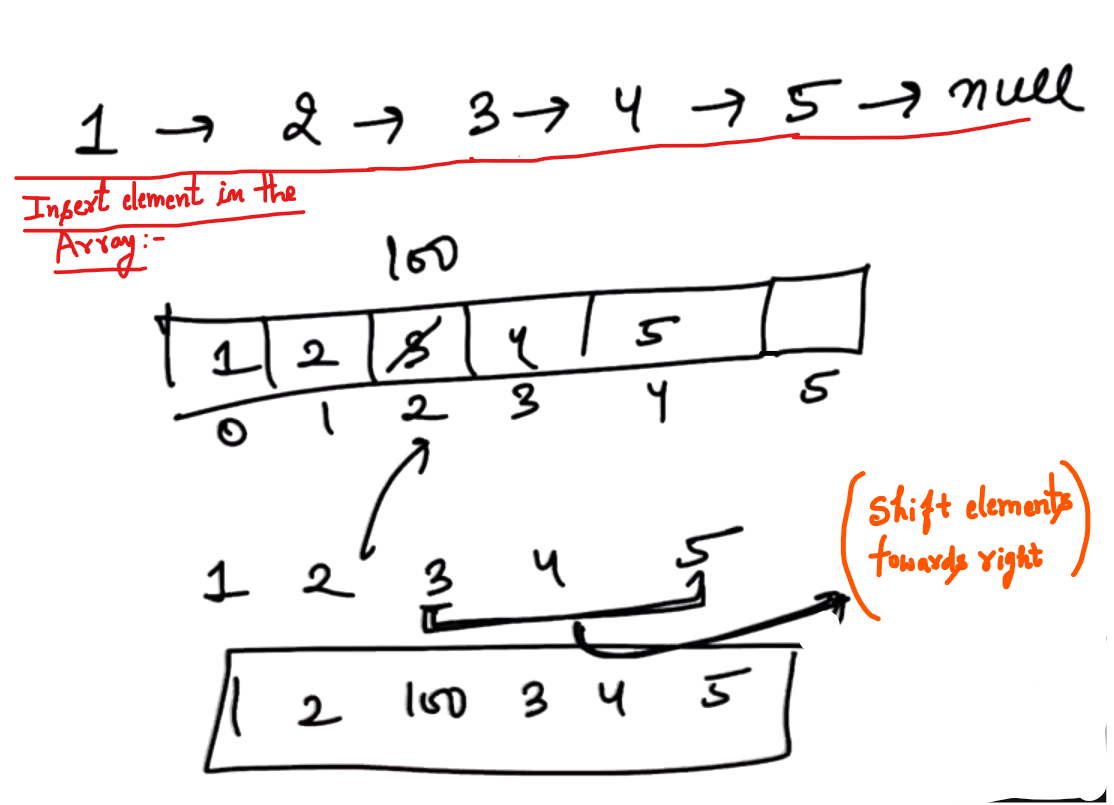 1 → 2 → 3 → 4 → 5 → null
Insert element in the
Array:-
100
1 2 3 4 5
0 1 2 3 4 5
(Shift elements
towards right)
1 2 3 4 5
1 2 100 3 4 5